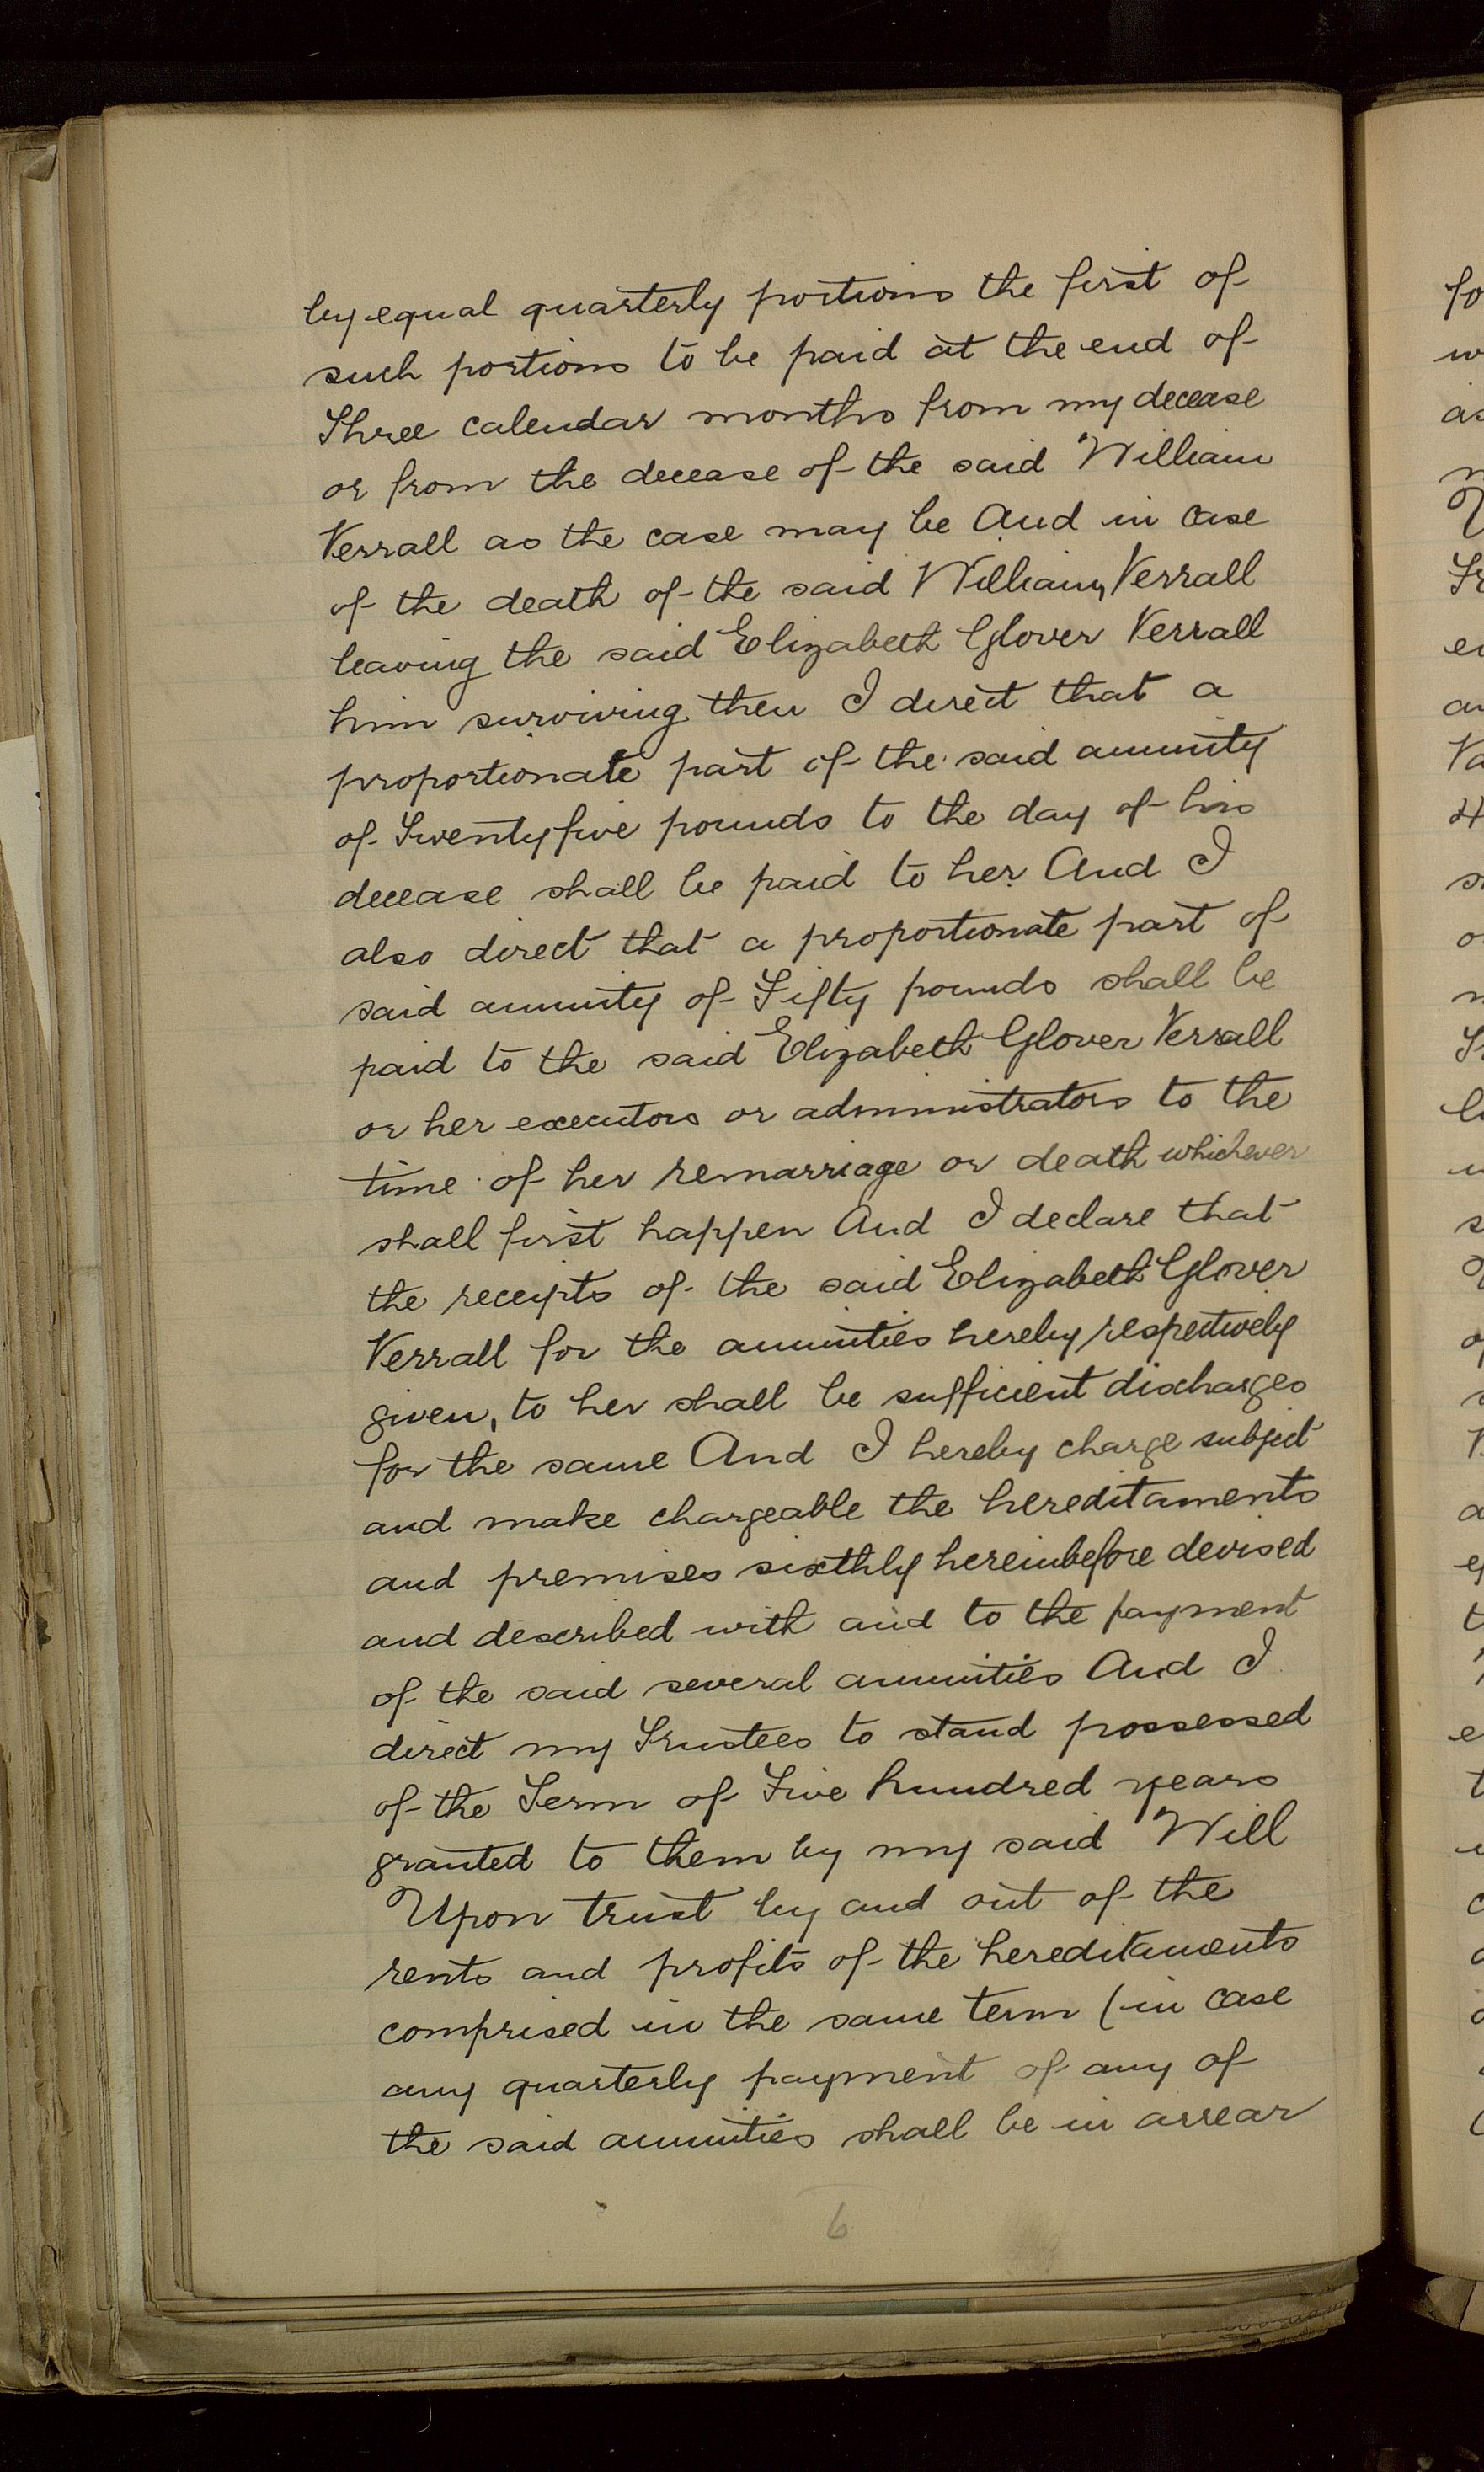 by equal quarterly portions the first of
such portions to be paid at the end of
Three calendar months from my decease
or from the decease of the said William
Verrall as the case may be And in case
of the death of the said William Verrall
leaving the said Elizabeth Glover Verrall
him surviving then I direct that a
proportionate part of the said annuity
of Twentyfive pounds to the day of his
decease shall be paid to her And I
also direct that a proportionate part of
said annuity of Fifty pounds shall be
paid to the said Elizabeth Glover Verrall
or her executors or administrators to the
time of her remarriage or death whichever
shall first happen And I declare that
the receipts of the said Elizabeth Glover
Verrall for the annuities hereby respectively
given, to her shall be sufficient discharges
for the same And I hereby charge subject
and make chargeable the hereditaments
and premises sixthly hereinbefore devised
and described with and to the payment
of the said several annuities And I
direct my Trustees to stand possessed
of the Term of Five hundred years
granted to them by my said Will
Upon trust by and out of the
rents and profits of the hereditaments
comprised in the same term (in case
any quarterly payment of any of
the said annuities shall be in arrear
6